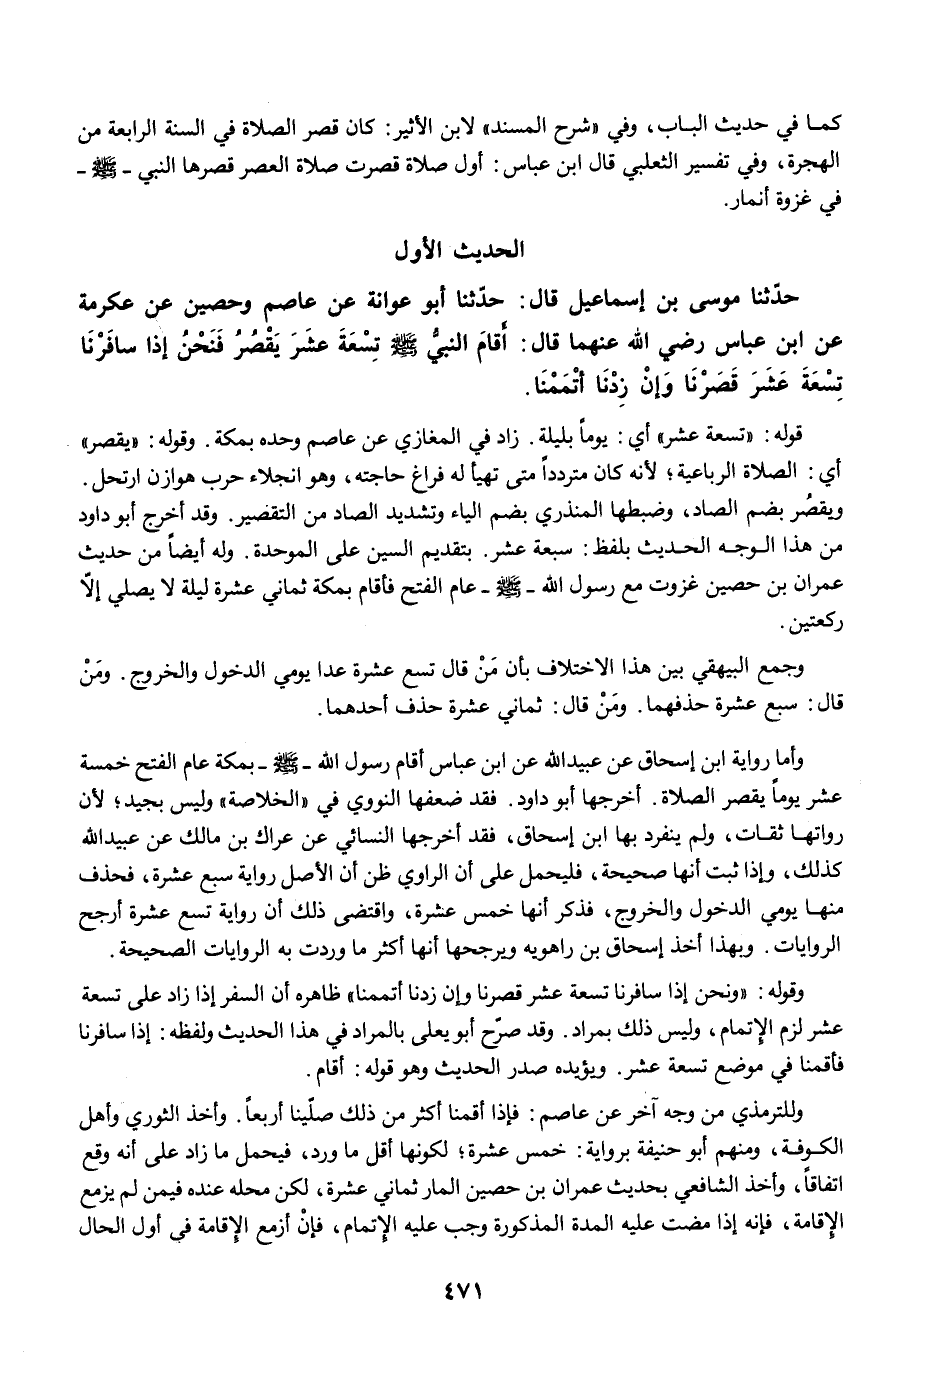 كما في حديث الباب، وفي «شرح المسند» لابن الأثير: كان قصر الصلاة في السنة الرابعة من
الهجرة، وفي تفسير الثعلبي قال ابن عباس: أول صلاة قصرت صلاة العصر قصرها النبي ـ ﷺ ـ
في غزوة أنمار.
الحديث الأول
حدّثنا موسى بن إسماعيل قال: حدّثنا أبو عوانة عن عاصم وحصين عن عكرمة
عن ابن عباس رضي الله عنهما قال: أَقامَ النبيُّ ﷺ تِسْعَةَ عشَرَ يَقْصُرُ فَنَحْنُ إذا سافَرْنَا
تِسْعَةَ عَشَرَ قَصَرْنَا وَإنْ زِدْنَا أتْمَمْنَا.
قوله: «تسعة عشر» أي: يوماً بليلة. زاد في المغازي عن عاصم وحده بمكة. وقوله: «يقصر»
أي: الصلاة الرباعية؛ لأنه كان متردداً متى تهيأ له فراغ حاجته، وهو انجلاء حرب هوازن ارتحل.
ويقصُر بضم الصاد، وضبطها المنذري بضم الياء وتشديد الصاد من التقصير. وقد أخرج أبو داود
من هذا الوجه الحديث بلفظ: سبعة عشر. بتقديم السين على الموحدة. وله أيضاً من حديث
عمران بن حصين غزوت مع رسول الله ـ ﷺ ـ عام الفتح فأقام بمكة ثماني عشرة ليلة لا يصلي إلّا
ركعتين.
وجمع البيهقي بين هذا الاختلاف بأن مَنْ قال تسع عشرة عدا يومي الدخول والخروج. ومَنْ
قال: سبع عشرة حذفهما. ومَنْ قال: ثماني عشرة حذف أحدهما.
وأما رواية ابن إسحاق عن عبيدالله عن ابن عباس أقام رسول الله ـ ﷺ ـ بمكة عام الفتح خمسة
عشر يوماً يقصر الصلاة. أخرجها أبو داود. فقد ضعفها النووي في «الخلاصة» وليس بجيد؛ لأن
رواتها ثقات، ولم ينفرد بها ابن إسحاق، فقد أخرجها النسائي عن عراك بن مالك عن عبيدالله
كذلك، وإذا ثبت أنها صحيحة، فليحمل على أن الراوي ظن أن الأصل رواية سبع عشرة، فحذف
منها يومي الدخول والخروج، فذكر أنها خمس عشرة، واقتضى ذلك أن رواية تسع عشرة أرجح
الروايات. وبهذا أخذ إسحاق بن راهويه ويرجحها أنها أكثر ما وردت به الروايات الصحيحة.
وقوله: «ونحن إذا سافرنا تسعة عشر قصرنا وإن زدنا أتممنا» ظاهره أن السفر إذا زاد على تسعة
عشر لزم الإتمام، وليس ذلك بمراد. وقد صرّح أبو يعلى بالمراد في هذا الحديث ولفظه: إذا سافرنا
فأقمنا في موضع تسعة عشر. ويؤيده صدر الحديث وهو قوله: أقام.
وللترمذي من وجه آخر عن عاصم: فإذا أقمنا أكثر من ذلك صلّينا أربعاً. وأخذ الثوري وأهل
الكوفة، ومنهم أبو حنيفة برواية: خمس عشرة؛ لكونها أقل ما ورد، فيحمل ما زاد على أنه وقع
اتفاقاً، وأخذ الشافعي بحديث عمران بن حصين المار ثماني عشرة، لكن محله عنده فيمن لم يزمع
الإقامة، فإنه إذا مضت عليه المدة المذكورة وجب عليه الإتمام، فإنْ أزمع الإقامة في أول الحال
٤٧١